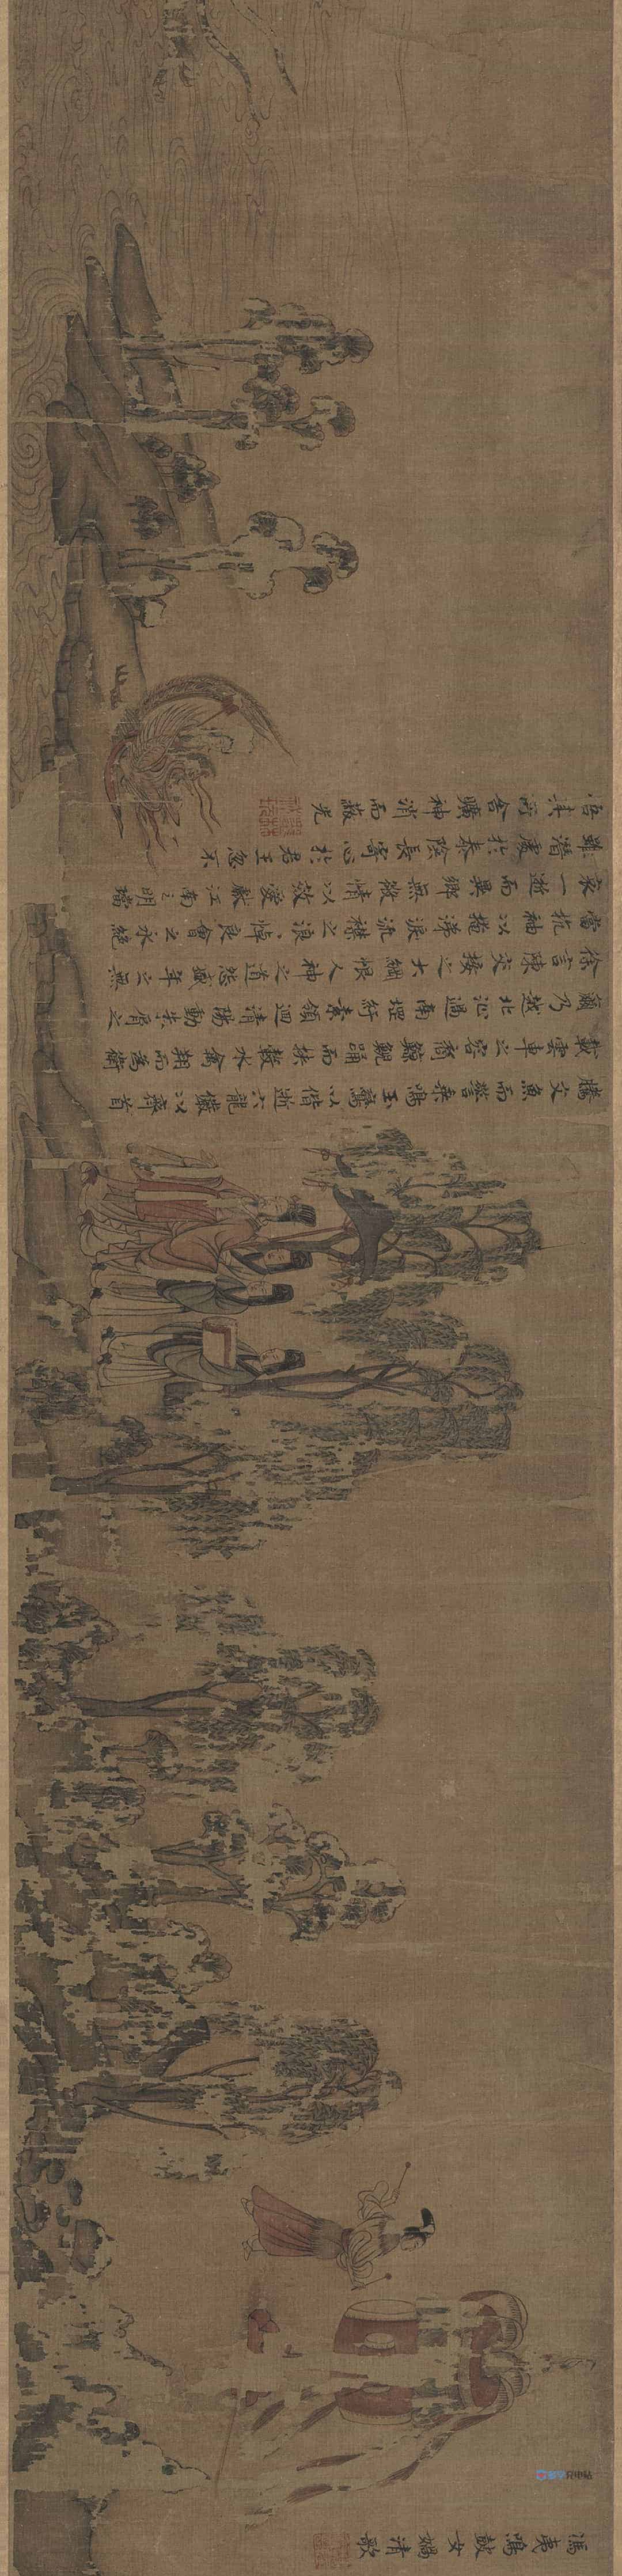 馮夷鳴鼓女媧清歌
騰文魚而警乘鳴玉鸞以偕逝六龍儼以齊首
載雲車之容裔鯨鯢踊而挾轂水禽翔而為衛
爾乃越北沚過南堽紆素領迴清陽動朱脣之
徐言陳交接之大綱恨人神之道怨盛年之無
當抗袖以掩涕淚流襟之浪、悼良會之永絕
哀一逝而異鄉無微情以效愛獻江南之明璫
雖潛處於泰陰長寄心於君王忽不
悟其所舍神消而蔽光